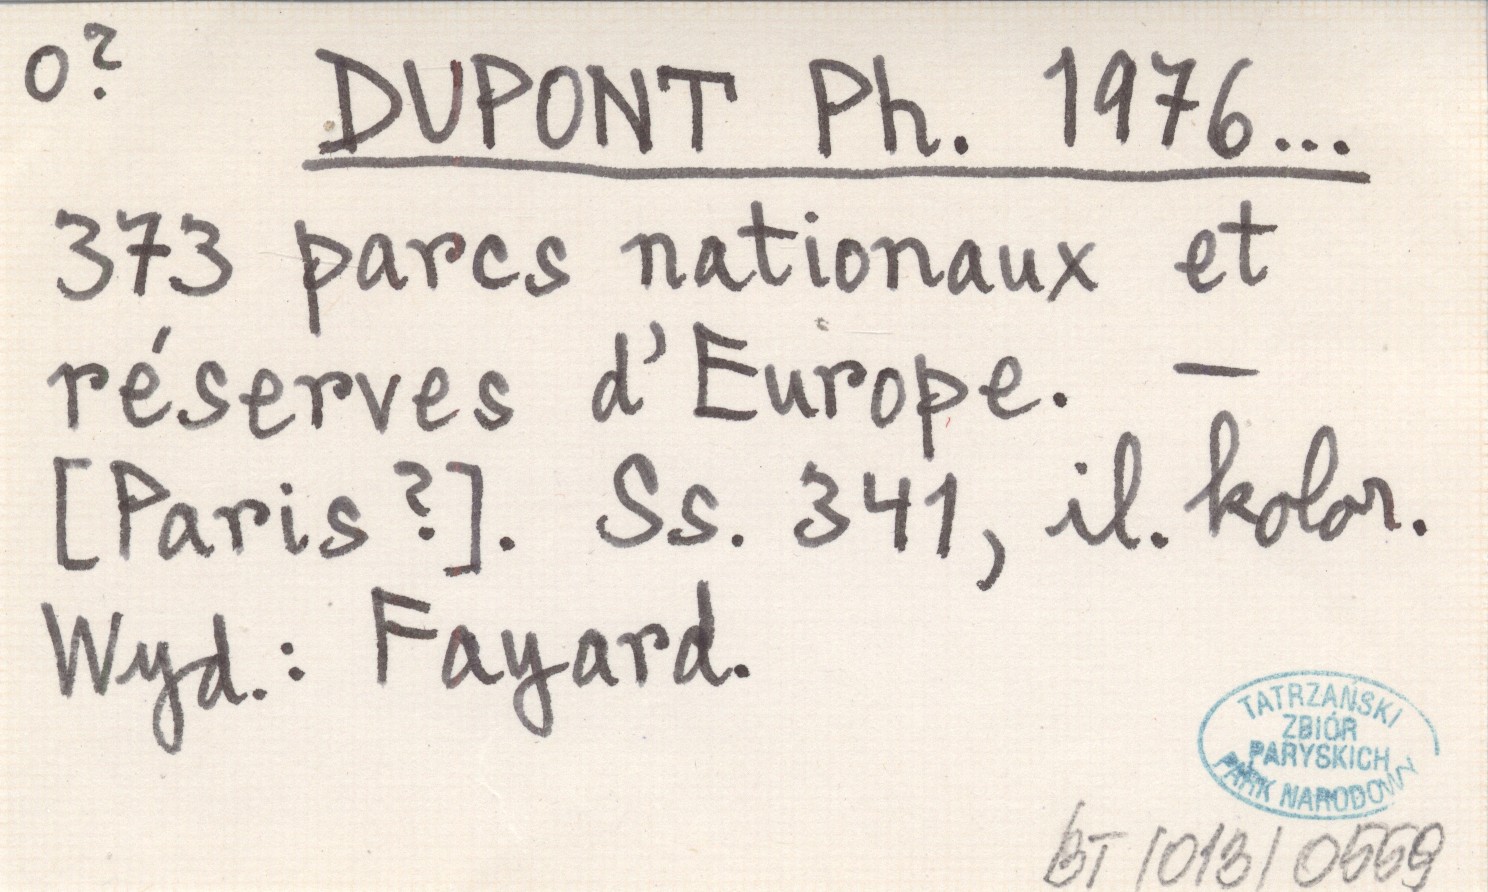 o?
DUPONT Ph. 1976...
373 parcs nationaux et
réserves d'Europe. –
[Paris?]. Ss. 341, il. kolor.
Wyd.: Fayard.
TATRZAŃSKI
ZBIÓR
PARYSKICH
PARK NARODOWY
BT /013/ 0559